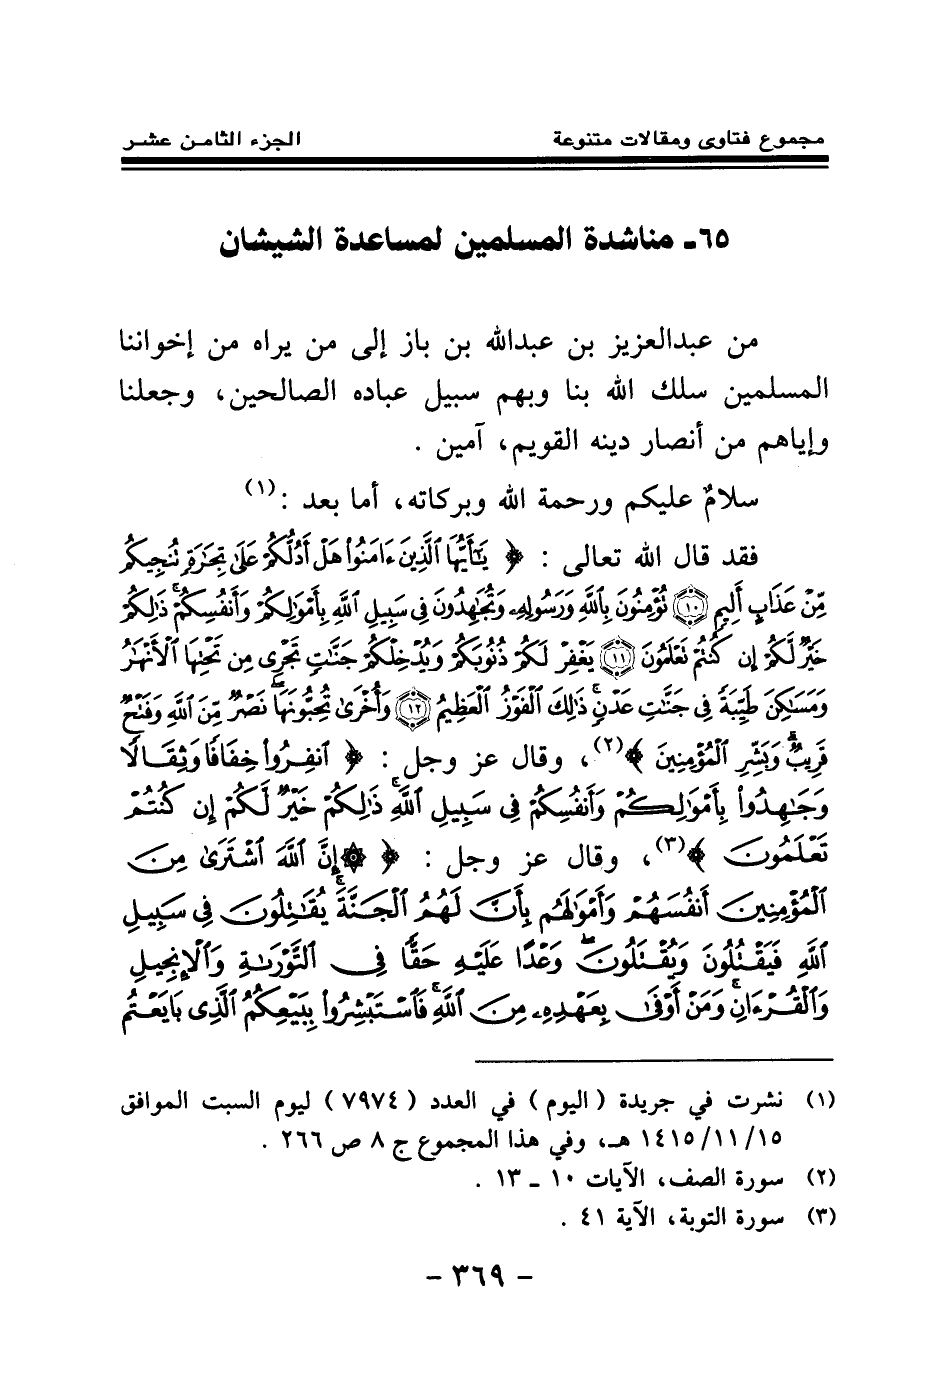 مجموع فتاوى ومقالات متنوعة الجزء الثامن عشر
٦٥- مناشدة المسلمين لمساعدة الشيشان
من عبدالعزيز بن عبدالله بن باز إلى من يراه من إخواننا
المسلمين سلك الله بنا وبهم سبيل عباده الصالحين، وجعلنا
وإياهم من أنصار دينه القويم، آمين .
سلامٌ عليكم ورحمة الله وبركاته، أما بعد :(١)
فقد قال الله تعالى : ﴿ يَٰٓأَيُّهَا ٱلَّذِينَ ءَامَنُوا۟ هَلْ أَدُلُّكُمْ عَلَىٰ تِجَٰرَةٍ تُنجِيكُم
مِّنْ عَذَابٍ أَلِيمٍ ۝١٠ تُؤْمِنُونَ بِٱللَّهِ وَرَسُولِهِۦ وَتُجَٰهِدُونَ فِى سَبِيلِ ٱللَّهِ بِأَمْوَٰلِكُمْ وَأَنفُسِكُمْ ۚ ذَٰلِكُمْ
خَيْرٌ لَّكُمْ إِن كُنتُمْ تَعْلَمُونَ ۝١١ يَغْفِرْ لَكُمْ ذُنُوبَكُمْ وَيُدْخِلْكُمْ جَنَّٰتٍ تَجْرِى مِن تَحْتِهَا ٱلْأَنْهَٰرُ
وَمَسَٰكِنَ طَيِّبَةً فِى جَنَّٰتِ عَدْنٍ ۚ ذَٰلِكَ ٱلْفَوْزُ ٱلْعَظِيمُ ۝١٢ وَأُخْرَىٰ تُحِبُّونَهَا ۖ نَصْرٌ مِّنَ ٱللَّهِ وَفَتْحٌ
قَرِيبٌ ۗ وَبَشِّرِ ٱلْمُؤْمِنِينَ ﴾(٢)، وقال عز وجل : ﴿ ٱنفِرُوا۟ خِفَافًا وَثِقَالًا
وَجَٰهِدُوا۟ بِأَمْوَٰلِكُمْ وَأَنفُسِكُمْ فِى سَبِيلِ ٱللَّهِ ۚ ذَٰلِكُمْ خَيْرٌ لَّكُمْ إِن كُنتُمْ
تَعْلَمُونَ ﴾(٣)، وقال عز وجل : ﴿ ۞ إِنَّ ٱللَّهَ ٱشْتَرَىٰ مِنَ
ٱلْمُؤْمِنِينَ أَنفُسَهُمْ وَأَمْوَٰلَهُم بِأَنَّ لَهُمُ ٱلْجَنَّةَ ۚ يُقَٰتِلُونَ فِى سَبِيلِ
ٱللَّهِ فَيَقْتُلُونَ وَيُقْتَلُونَ ۖ وَعْدًا عَلَيْهِ حَقًّا فِى ٱلتَّوْرَىٰةِ وَٱلْإِنجِيلِ
وَٱلْقُرْءَانِ ۚ وَمَنْ أَوْفَىٰ بِعَهْدِهِۦ مِنَ ٱللَّهِ ۚ فَٱسْتَبْشِرُوا۟ بِبَيْعِكُمُ ٱلَّذِى بَايَعْتُم
(١) نشرت في جريدة ( اليوم ) في العدد ( ٧٩٧٤ ) ليوم السبت الموافق
١٤١٥/١١/١٥ هـ، وفي هذا المجموع ج ٨ ص ٢٦٦ .
(٢) سورة الصف، الآيات ١٠ - ١٣ .
(٣) سورة التوبة، الآية ٤١ .
- ٣٦٩ -